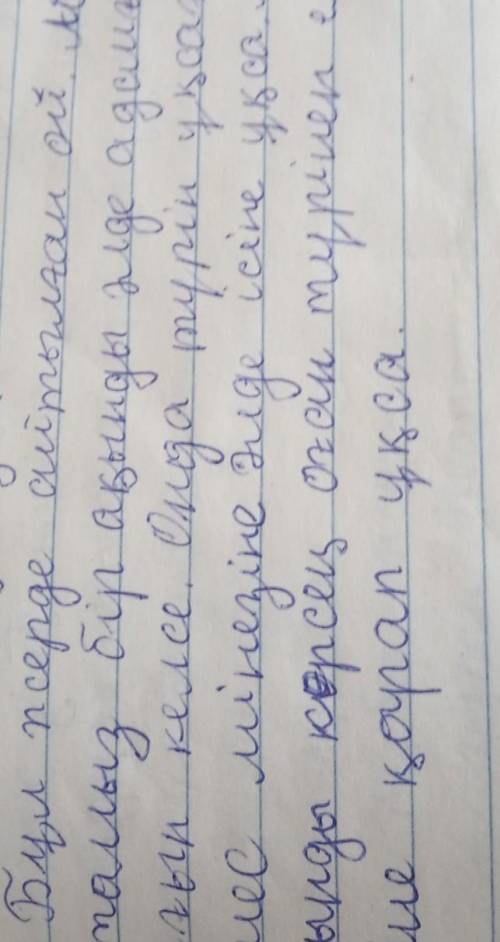 Бұл жерде айтылған ой.
мамыз бір ақынды әлде адам
ғып келсе. Онда түрін ұқса
мес мінезіне әлде ісіне ұқса.
ынды көрсең оған түрінен е
не қарап ұқса.